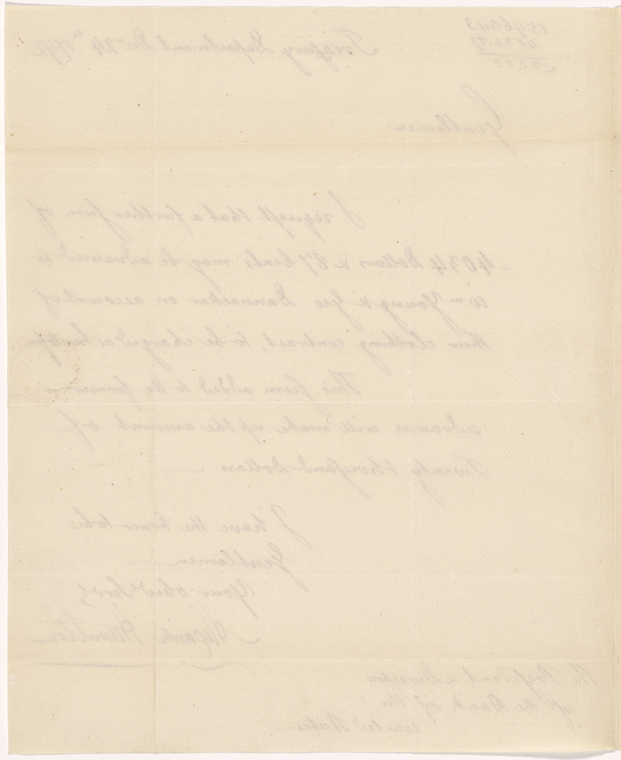 Treasury Department Dec 24th 1792
Gentlemen
I request that a further sum of
4034 Dollars & 87 Cents may be advanced to
Wm Young & Geo Dannacker on account of
their clothing contract, to be charged as here
This sum added to the former
advances will make up the amount of
Twenty thousand Dollars
I have the honor to be
Gentlemen
Your obedt Servt
Alexander Hamilton
The President & Directors
of the Bank of the
United States